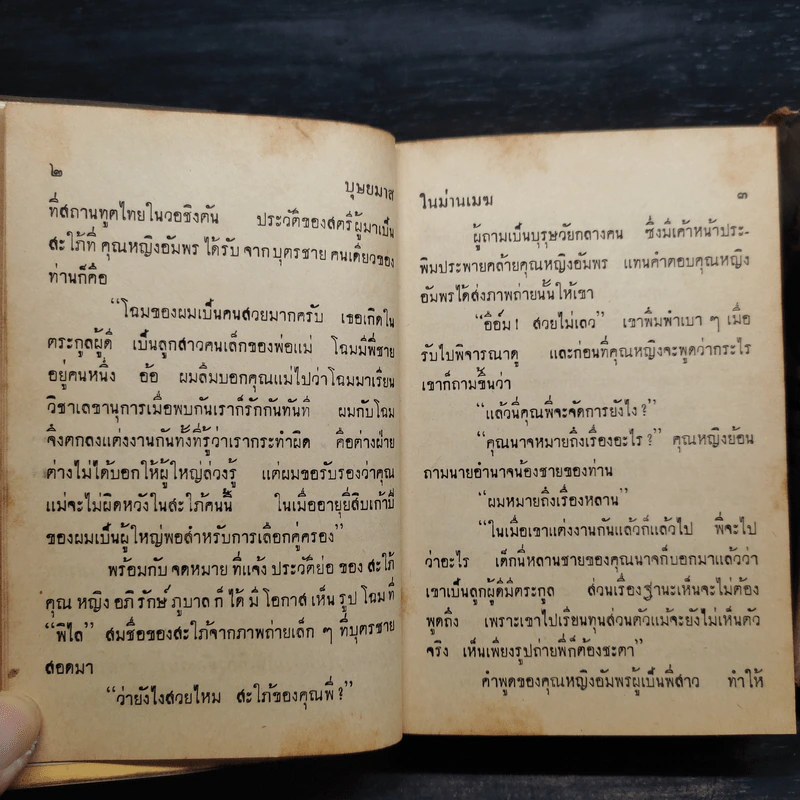 ๒
บุษยมาส
ที่สถานทูตไทยในวอชิงตัน ประวัติของสตรีผู้มาเป็น
สะใภ้ที่ คุณหญิงอัมพร ได้รับ จาก บุตรชาย คนเดียวของ
ท่านก็คือ
“โฉมของผมเป็นคนสวยมากครับ เธอเกิดใน
ตระกูลผู้ดี เป็นลูกสาวคนเล็กของพ่อแม่ โฉมมีพี่ชาย
อยู่คนหนึ่ง อ้อ ผมลืมบอกคุณแม่ไปว่าโฉมมาเรียน
วิชาเลขานุการเมื่อพบกันเราก็รักกันทันที ผมกับโฉม
จึงตกลงแต่งงานกันทั้งที่รู้ว่าเรากระทำผิด คือต่างฝ่าย
ต่างไม่ได้บอกให้ผู้ใหญ่ล่วงรู้ แต่ผมขอรับรองว่าคุณ
แม่จะไม่ผิดหวังในสะใภ้คนนี้ ในเมื่ออายุยี่สิบเก้าปี
ของผมเป็นผู้ใหญ่พอสำหรับการเลือกคู่ครอง”
พร้อมกับ จดหมาย ที่แจ้ง ประวัติย่อ ของ สะใภ้
คุณ หญิง อภิรักษ์ภูบาล ก็ ได้ มี โอกาส เห็น รูป โฉม ที่
“พิไล” สมชื่อของสะใภ้จากภาพถ่ายเล็ก ๆ ที่บุตรชาย
สอดมา
“ว่ายังไงสวยไหม สะใภ้ของคุณพี่?”
ในม่านเมฆ
๓
ผู้ถามเป็นบุรุษวัยกลางคน ซึ่งมีเค้าหน้าประ-
พิมประพายคล้ายคุณหญิงอัมพร แทนคำตอบคุณหญิง
อัมพรได้ส่งภาพถ่ายนั้นให้เขา
“อื้อฮึม! สวยไม่เลว” เขาพึมพำเบา ๆ เมื่อ
รับไปพิจารณาดู และก่อนที่คุณหญิงจะพูดว่ากระไร
เขาก็ถามขึ้นว่า
“แล้วนี่คุณพี่จะจัดการยังไง?”
“คุณนาจหมายถึงเรื่องอะไร?” คุณหญิงย้อน
ถามนายอำนาจน้องชายของท่าน
“ผมหมายถึงเรื่องหลาน”
“ในเมื่อเขาแต่งงานกันแล้วก็แล้วไป พี่จะไป
ว่าอะไร เด็กนี่หลานชายของคุณนาจก็บอกมาแล้วว่า
เขาเป็นลูกผู้ดีมีตระกูล ส่วนเรื่องฐานะเห็นจะไม่ต้อง
พูดถึง เพราะเขาไปเรียนทุนส่วนตัวแม้จะยังไม่เห็นตัว
จริง เห็นเพียงรูปถ่ายพี่ก็ต้องชะตา”
คำพูดของคุณหญิงอัมพรผู้เป็นพี่สาว ทำให้